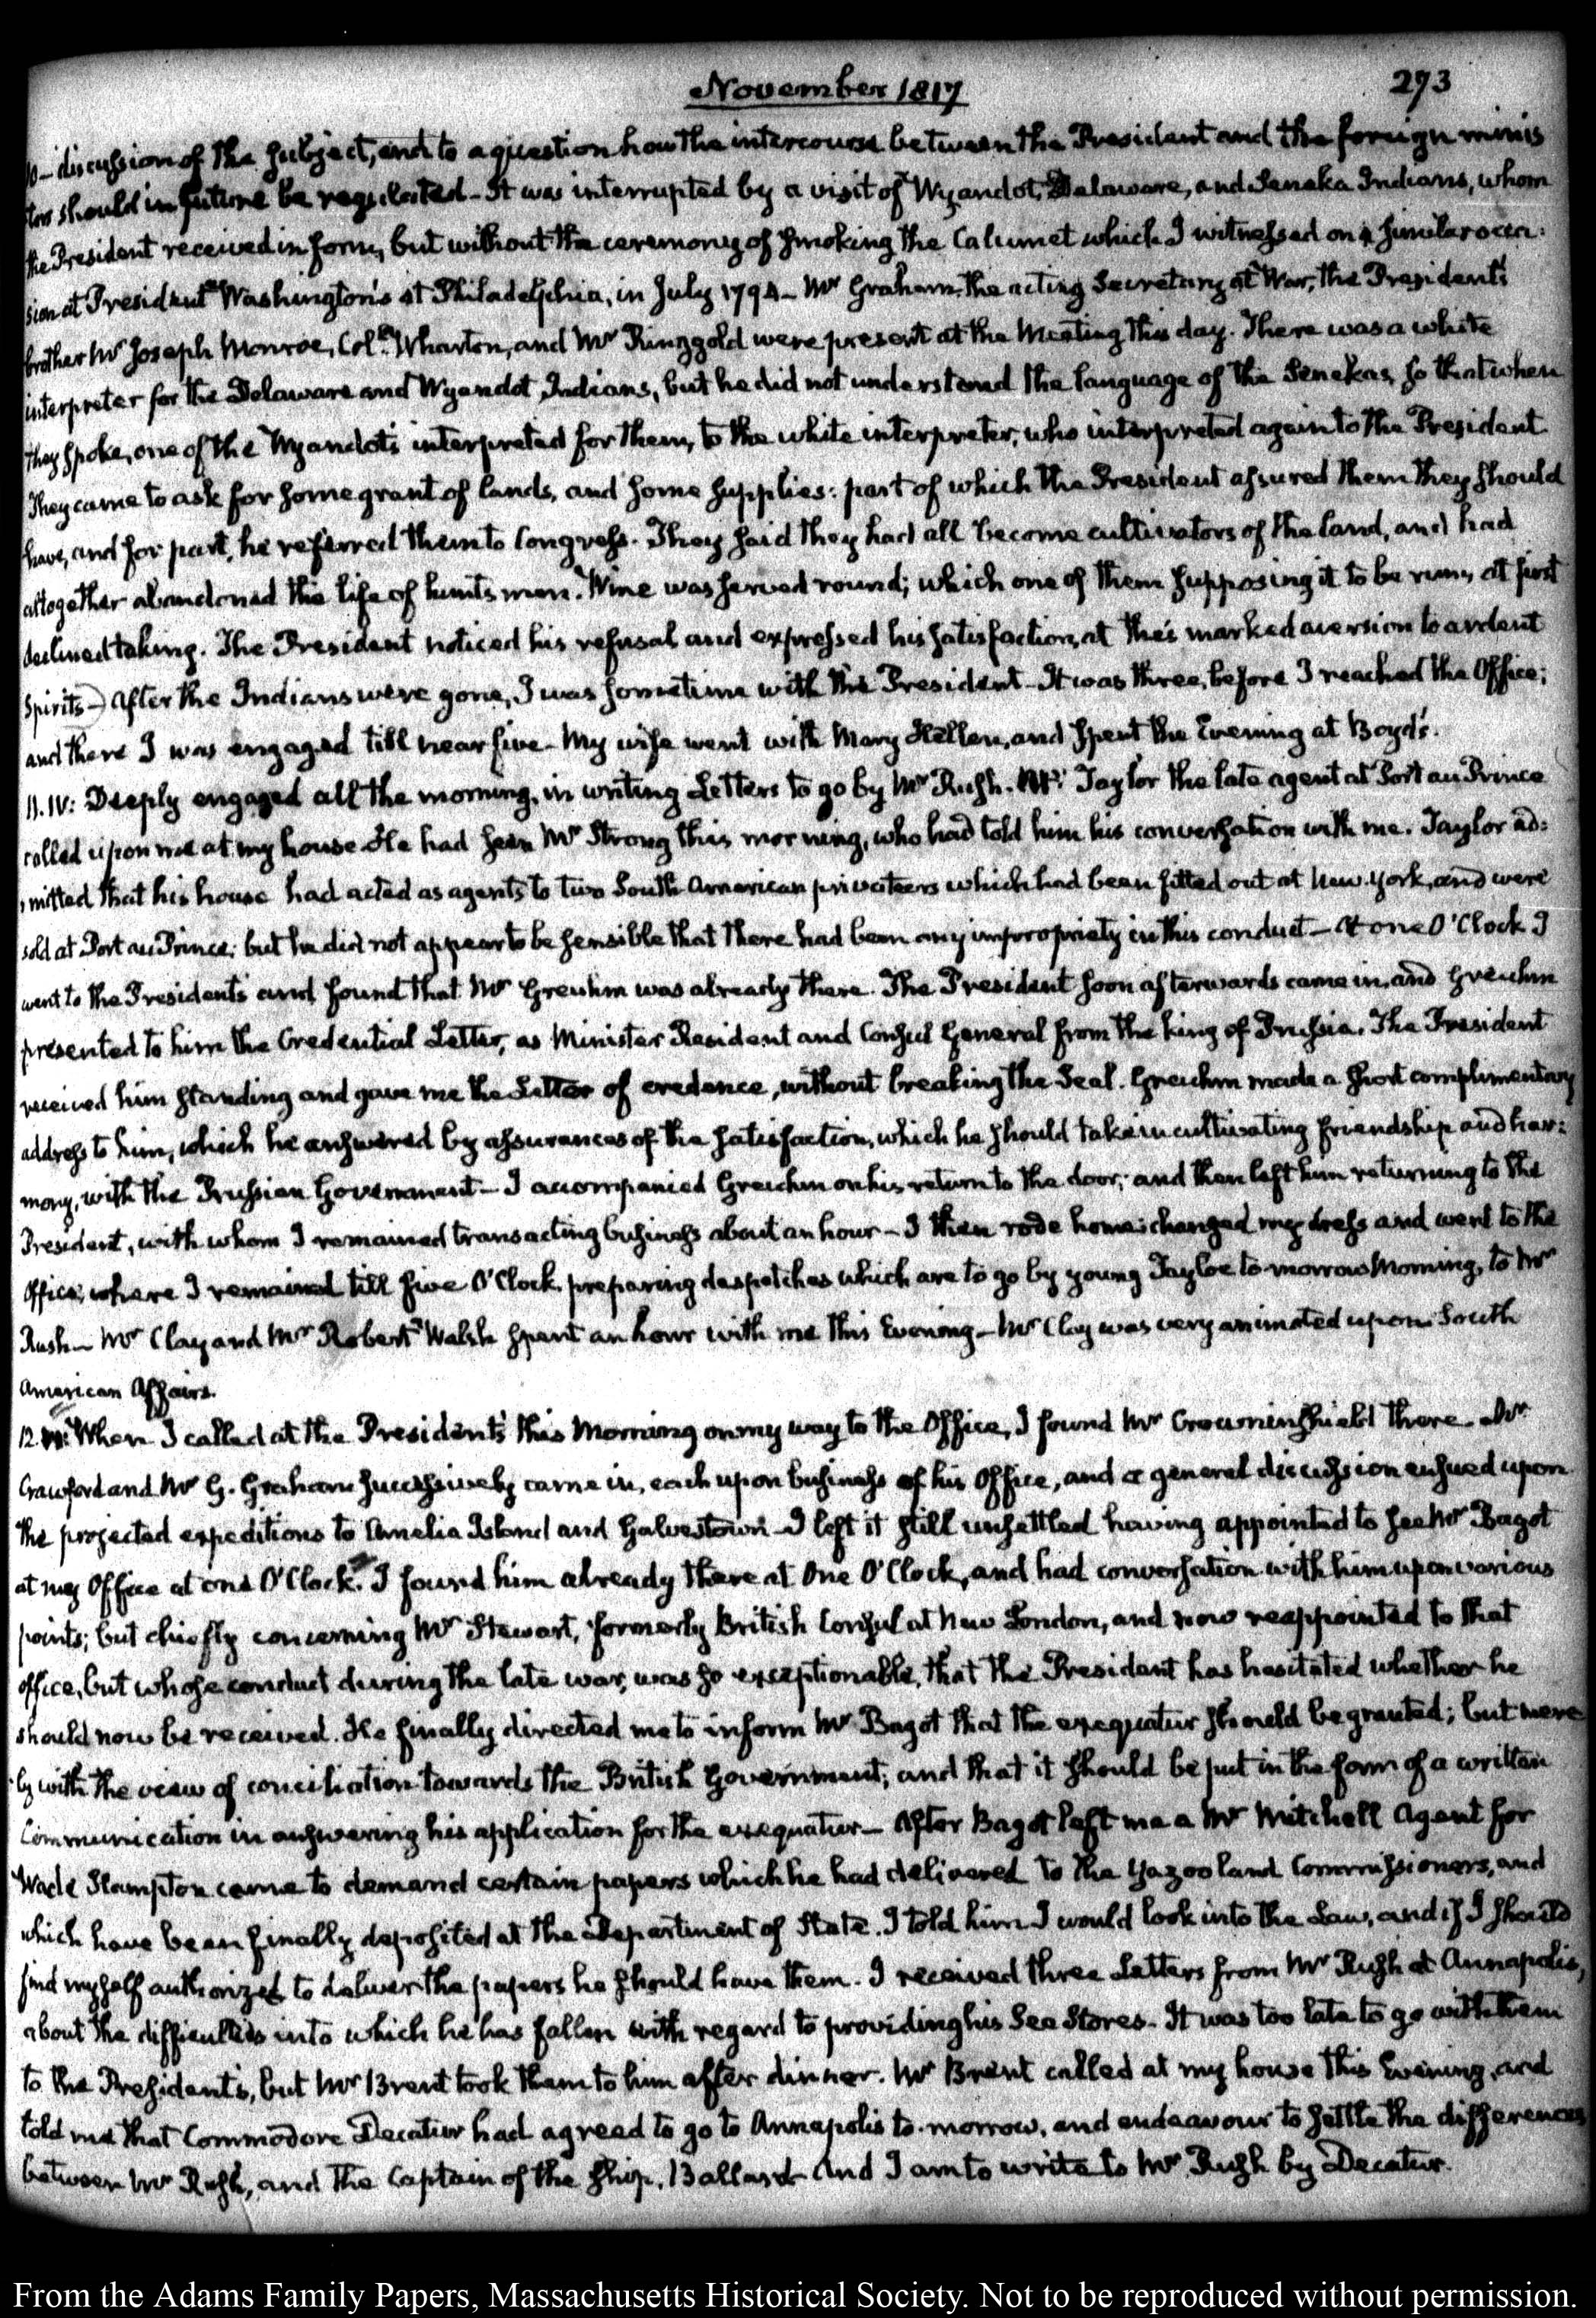 November 1817
273
to discussion of the subject, and to a question how the intercourse between the President and the foreign minis
ters should in future be regulated – It was interrupted by a visit of Wyandot, Delaware, and Seneka Indians, whom
the President received in form, but without the ceremony of smoking the Calumet which I witnessed on a similar occa:
sion at President Washington's at Philadelphia, in July 1794 – Mr Graham, the acting Secretary at War, the President's
brother Mr Joseph Monroe, Coll. Wharton, and Mr Ringgold were present at the Meeting this day. There was a white
interpreter for the Delaware and Wyandot Indians, but he did not understand the language of the Senekas, so that when
they spoke, one of the Wyandots interpreted for them, to the white interpreter, who interpreted again to the President
They came to ask for some grant of lands, and some supplies: part of which the President assured them they should
have, and for part, he referred them to Congress. They said they had all become cultivators of the land, and had
altogether abandoned the life of huntsmen. Wine was served round; which one of them supposing it to be rum, at first
declined taking. The President noticed his refusal and expressed his satisfaction, at this marked aversion to ardent
Spirits – After the Indians were gone, I was sometime with the President – It was three, before I reached the Office;
and there I was engaged till near five – My wife went with Mary Hellen, and spent the Evening at Boyd's.
11. IV: Deeply engaged all the morning, in writing Letters to go by Mr Rush. Mr Taylor the late agent at Port au Prince
called upon me at my house. He had seen Mr Strong this morning, who had told him his conversation with me. Taylor ad:
mitted that his house had acted as agents to two South-American privateers which had been fitted out at New-York, and were
sold at Port au Prince; but he did not appear to be sensible that there had been any impropriety in this conduct – At one O'Clock I
went to the President's and found that Mr Greuhm was already there. The President soon afterwards came in, and Greuhm
presented to him the Credential Letter, as Minister Resident and Consul General from the King of Prussia. The President
received him standing and gave me the Letter of credence, without breaking the Seal. Greuhm made a short complimentary
address to him, which he answered by assurances of the satisfaction, which he should take in cultivating friendship and har:
mony, with the Prussian Government – I accompanied Greuhm on his return to the door; and then left him returning to the
President, with whom I remained transacting business about an hour – I then rode home: changed my dress and went to the
Office; where I remained till five O'Clock, preparing despatches which are to go by young Tayloe to-morrow Morning, to Mr
Rush – Mr Clay and Mr Robert Walsh spent an hour with me this Evening – Mr Clay was very animated upon South
American Affairs.
12. When I called at the President's this Morning on my way to the Office, I found Mr Crowninshield there – Mr
Crawford and Mr G. Graham successively came in, each upon business of his Office, and a general discussion ensued upon
the projected expeditions to Amelia Island and Galvestown – I left it still unsettled having appointed to see Mr Bagot
at my Office at one O'Clock. I found him already there at One O'Clock, and had conversation with him upon various
points; but chiefly concerning Mr Stewart, formerly British Consul at New London, and now reappointed to that
office, but whose conduct during the late war, was so exceptionable, that the President has hesitated whether he
should now be received. He finally directed me to inform Mr Bagot that the exequatur should be granted; but mere
ly with the view of conciliation towards the British Government; and that it should be put in the form of a written
Communication in answering his application for the exequatur – After Bagot left me a Mr Mitchell Agent for
Wade Hampton came to demand certain papers which he had delivered to the Yazoo land Commissioners, and
which have been finally deposited at the Department of State. I told him I would look into the Law, and if I should
find myself authorized to deliver the papers he should have them. I received three Letters from Mr Rush at Annapolis,
about the difficulties into which he has fallen with regard to providing his Sea Stores – It was too late to go with them
to the President's, but Mr Brent took them to him after dinner. Mr Brent called at my house this Evening, and
told me that Commodore Decatur had agreed to go to Annapolis to-morrow, and endeavour to settle the differences
between Mr Rush, and the Captain of the ship, Ballard – And I am to write to Mr Rush by Decatur.
From the Adams Family Papers, Massachusetts Historical Society. Not to be reproduced without permission.